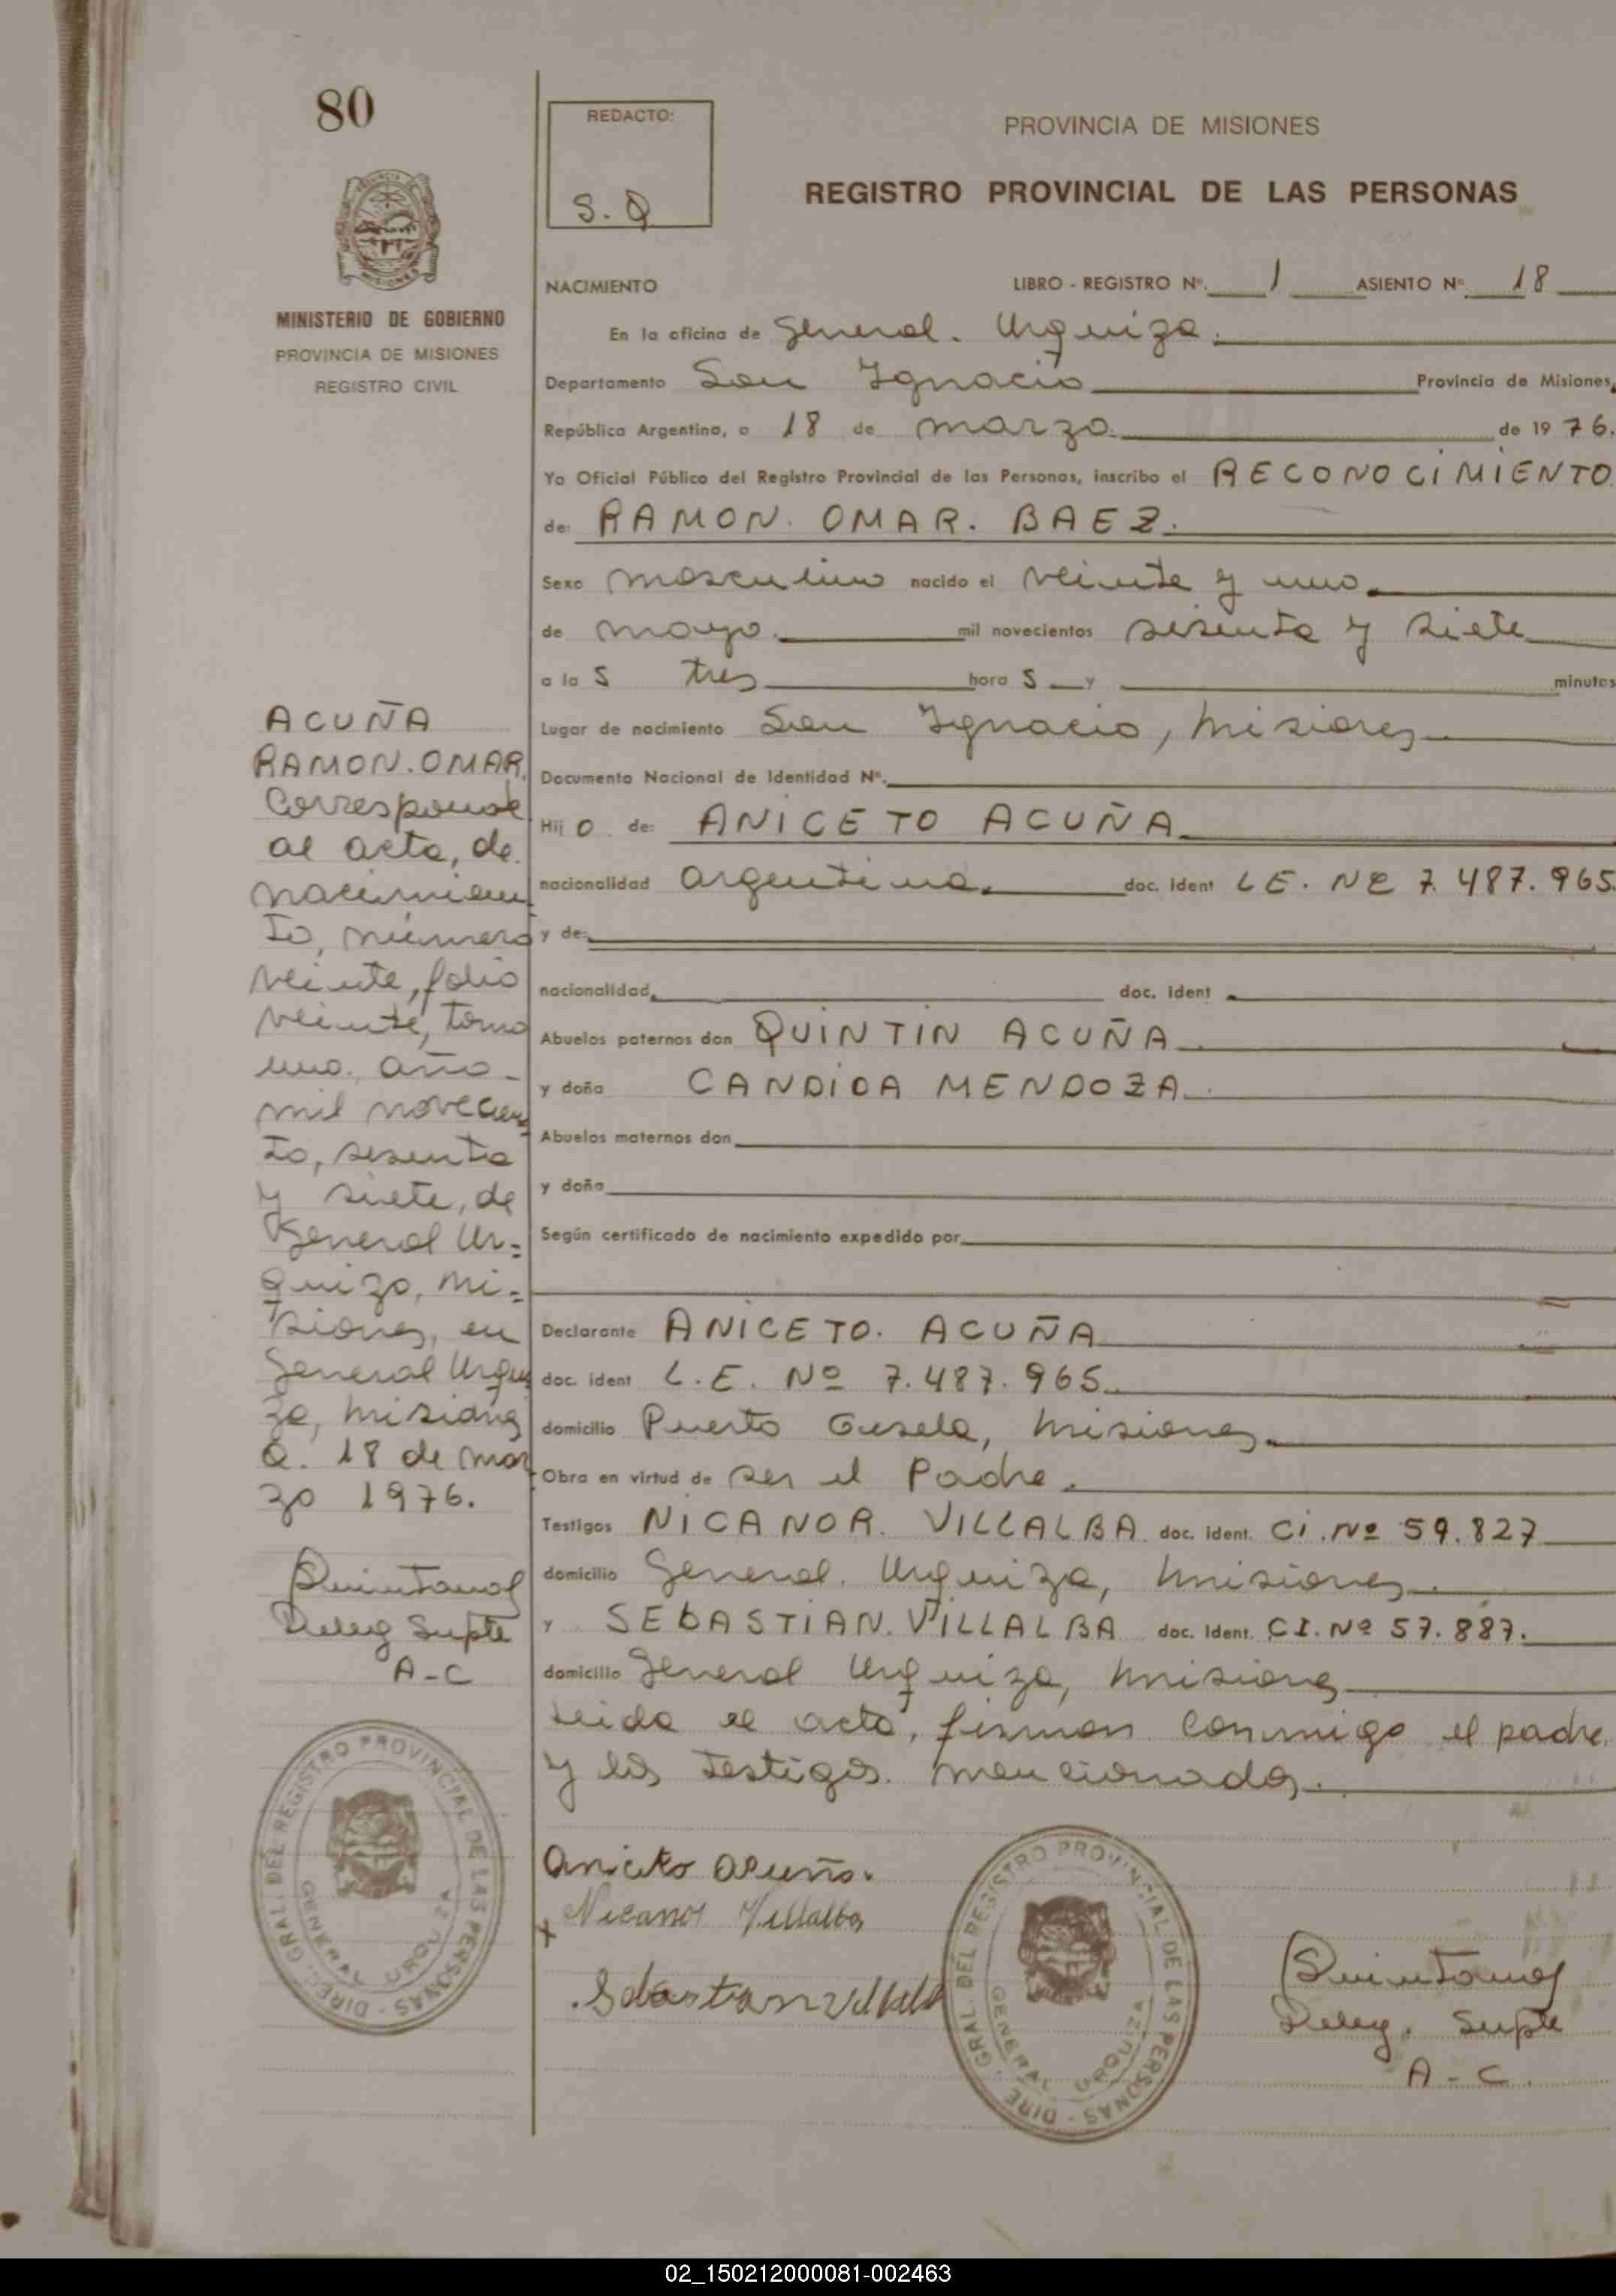 80
MINISTERIO DE GOBIERNO
PROVINCIA DE MISIONES
REGISTRO CIVIL
REDACTO:
S. Q
PROVINCIA DE MISIONES
REGISTRO PROVINCIAL DE LAS PERSONAS
NACIMIENTO LIBRO - REGISTRO Nº. 1 ASIENTO Nº 18
En la oficina de General. Urquiza.
Departamento San Ignacio Provincia de Misiones,
República Argentina, a 18 de marzo. de 1976.
Yo Oficial Público del Registro Provincial de las Personas, inscribo el RECONOCIMIENTO
de: RAMON. OMAR. BAEZ.
Sexo masculino nacido el veinte y uno.
de mayo. mil novecientos sesenta y siete
a las tres horas y minutos
Lugar de nacimiento San Ignacio, Misiones
Documento Nacional de Identidad Nº.
Hijo de: ANICETO ACUÑA
nacionalidad argentina. doc. ident LE. Nº 7.487.965.
y de:
nacionalidad. doc. ident
Abuelos paternos don QUINTIN ACUÑA
y doña CANDIDA MENDOZA.
Abuelos maternos don
y doña
Según certificado de nacimiento expedido por
Declarante ANICETO. ACUÑA
doc. ident L.E. Nº 7.487.965.
domicilio Puerto Gisela, Misiones.
Obra en virtud de ser el Padre.
Testigos NICANOR. VILLALBA doc. ident. CI. Nº 59.827
domicilio General. Urquiza, Misiones.
y SEBASTIAN. VILLALBA doc. ident. CI. Nº 57.887.
domicilio General Urquiza, Misiones
Leida el acta, firman conmigo el padre.
y los testigos. mencionados.
ACUÑA
RAMON. OMAR.
Corresponde
al acta, de.
nacimien
to, número
veinte, folio
veinte, tomo
uno. año-
mil novecien
to, sesenta
y siete, de
General Ur=
quiza, Mi=
siones, en
General Urqui
za, Misiones
a. 18 de mar
zo 1976.
Quintana
Deleg Supte
A-C
DIREC. GRAL. DEL REGISTRO PROVINCIAL DE LAS PERSONAS
GENERAL URQUIZA
Aniceto Acuña.
Nicanor Villalba
Sebastian Villalb
DIREC. GRAL. DEL REGISTRO PROVINCIAL DE LAS PERSONAS
GENERAL URQUIZA
Quintana
Deleg. Supte
A-C.
02_150212000081-002463